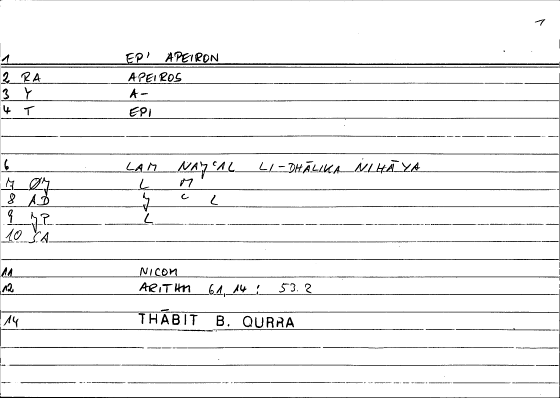 1
1 EP' APEIRON
2 RA APEIROS
3 Y A-
4 T EPI
6 LAM NAJʿAL LI-DHĀLIKA NIHĀYA
7 L M
8 AD J ʿ L
9 JP L
10 SA
11 NICOM
12 ARITHM 61,14 : 53.2
14 THĀBIT B. QURRA